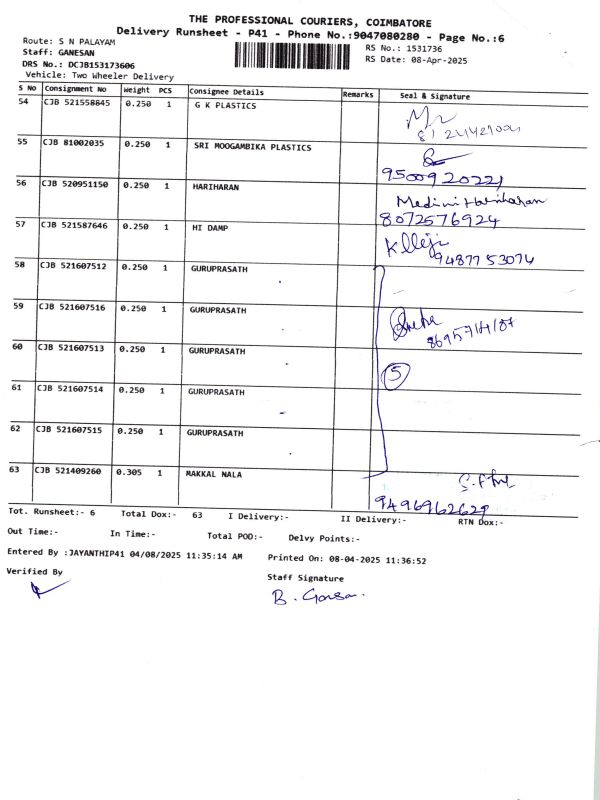 THE PROFESSIONAL COURIERS, COIMBATORE
Delivery Runsheet - P41 - Phone No.:9047080280 - Page No.:6
Route: S N PALAYAM
RS No.: 1531736
Staff: GANESAN
RS Date: 08-Apr-2025
DRS No.: DCJB153173606
Vehicle: Two Wheeler Delivery
S No Consignment No Weight PCS Consignee Details Remarks Seal & Signature
54 CJB 521558845 0.250 1 G K PLASTICS
55 CJB 81002035 0.250 1 SRI MOOGAMBIKA PLASTICS
9500920221
56 CJB 520951150 0.250 1 HARIHARAN Medini Hariharan
8072576924
57 CJB 521587646 0.250 1 HI DAMP
9487753074
58 CJB 521607512 0.250 1 GURUPRASATH
59 CJB 521607516 0.250 1 GURUPRASATH
60 CJB 521607513 0.250 1 GURUPRASATH
5
61 CJB 521607514 0.250 1 GURUPRASATH
62 CJB 521607515 0.250 1 GURUPRASATH
63 CJB 521409260 0.305 1 MAKKAL NALA
9496962629
Tot. Runsheet:- 6 Total Dox:- 63 I Delivery:- II Delivery:- RTN Dox:-
Out Time:- In Time:- Total POD:- Delvy Points:-
Entered By :JAYANTHIP41 04/08/2025 11:35:14 AM Printed On: 08-04-2025 11:36:52
Verified By
Staff Signature